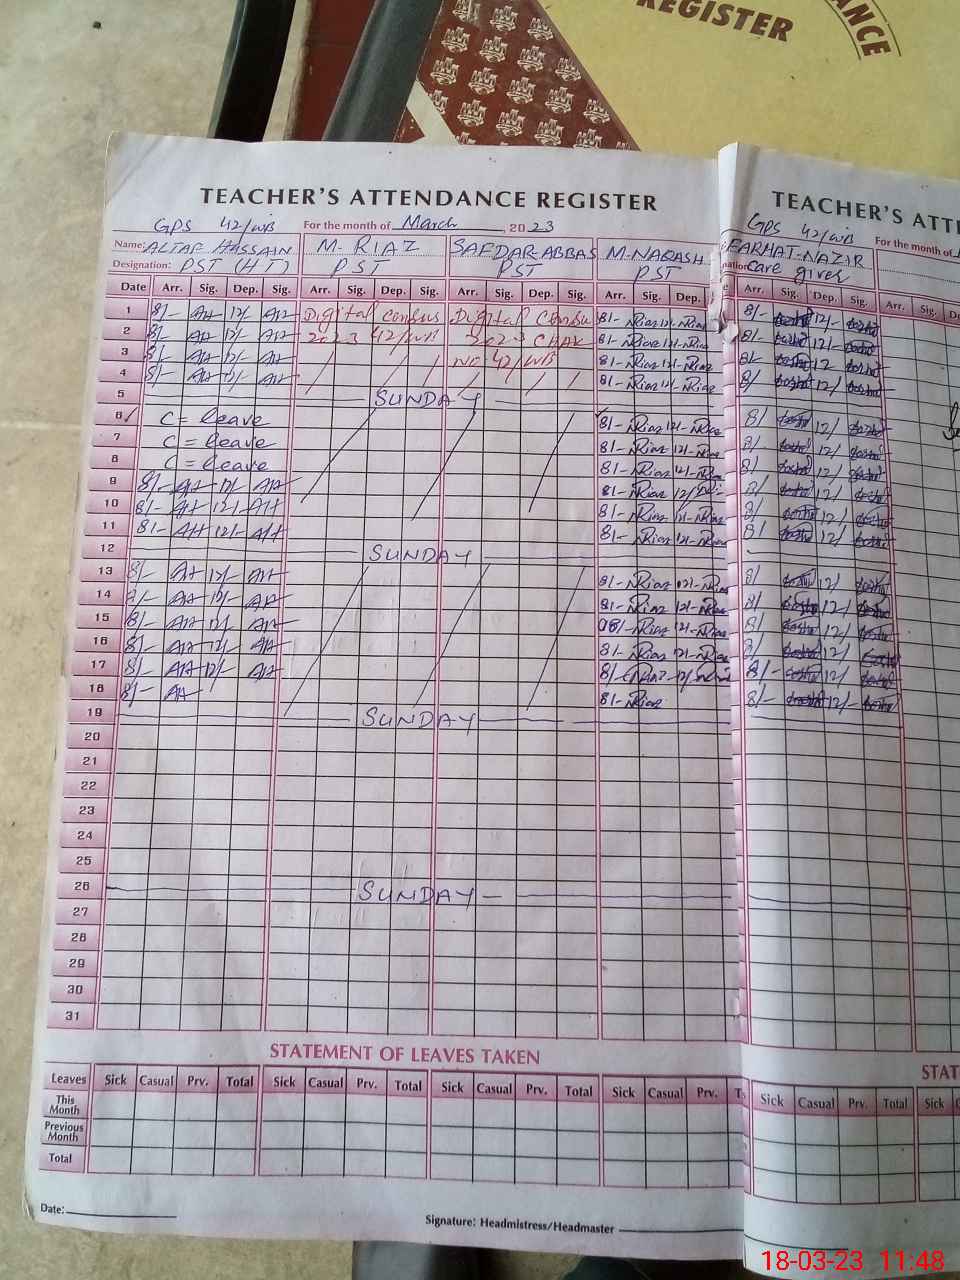 REGISTER
ANCE
TEACHER'S ATTENDANCE REGISTER
GPS 42/WB For the month of March, 2023
Name: ALTAF HASSAIN M-RIAZ SAFDAR-ABBAS M-NAQASH
Designation: PST (HT) PST PST PST
Date Arr. Sig. Dep. Sig. Arr. Sig. Dep. Sig. Arr. Sig. Dep. Sig. Arr. Sig. Dep.
1 8/- AH 12/- AH Digital census Digital Censu 8/- NRiaz 12/- NRiaz
2 8/- AH 12/- AH 2023 42/WB 2023 CHAK 8/- NRiaz 12/- NRiaz
3 8/- AH 12/- AH NO 42/WB 8/- NRiaz 12/- NRiaz
4 8/- AH 12/- AH 8/- NRiaz 12/- NRiaz
5 SUNDAY
6 C = leave 8/- NRiaz 12/- NRiaz
7 C = leave 8/- NRiaz 12/- NRiaz
8 C = leave 8/- NRiaz 12/- NRiaz
9 8/- AH 12/- AH 8/- NRiaz 12/
10 8/- AH 12/- AH 8/- NRiaz 12/- NRiaz
11 8/- AH 12/- AH 8/- NRiaz 12/- NRiaz
12 SUNDAY
13 8/- AH 12/- AH 8/- NRiaz 12/- NRiaz
14 8/- AH 12/- AH 8/- NRiaz 12/- NRiaz
15 8/- AH 12/- AH 08/- NRiaz 12/- NRiaz
16 8/- AH 12/- AH 8/- NRiaz 12/- NRiaz
17 8/- AH 12/- AH 8/- NRiaz 12/-
18 8/- AH 8/- NRiaz
19 SUNDAY
20
21
22
23
24
25
26 SUNDAY
27
28
29
30
31
STATEMENT OF LEAVES TAKEN
Leaves Sick Casual Prv. Total Sick Casual Prv. Total Sick Casual Prv. Total Sick Casual Prv. T
This Month
Previous Month
Total
Date:
Signature: Headmistress/Headmaster
TEACHER'S ATTE
GPS 42/WB For the month of
FARHAT-NAZIR
nation: care giver
Arr. Sig. Dep. Sig. Arr. Sig. De
8/- 12/-
8/- 12/-
8/- 12
8/ 12/
8/ 12/
8/ 12/
8/ 12/
8/ 12/
8/ 12/
8/ 12/
8/ 12/
8/ 12/
8/ 12/
8/ 12/
8/- 12/
8/- 12/-
STAT
Sick Casual Prv. Total Sick C
18-03-23 11:48